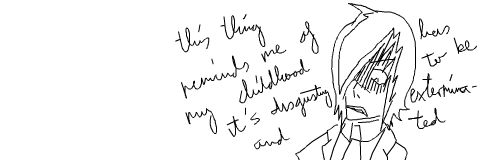 this thing
reminds me of
my childhood
it's disgusting
and
has
to be
extermina-
ted